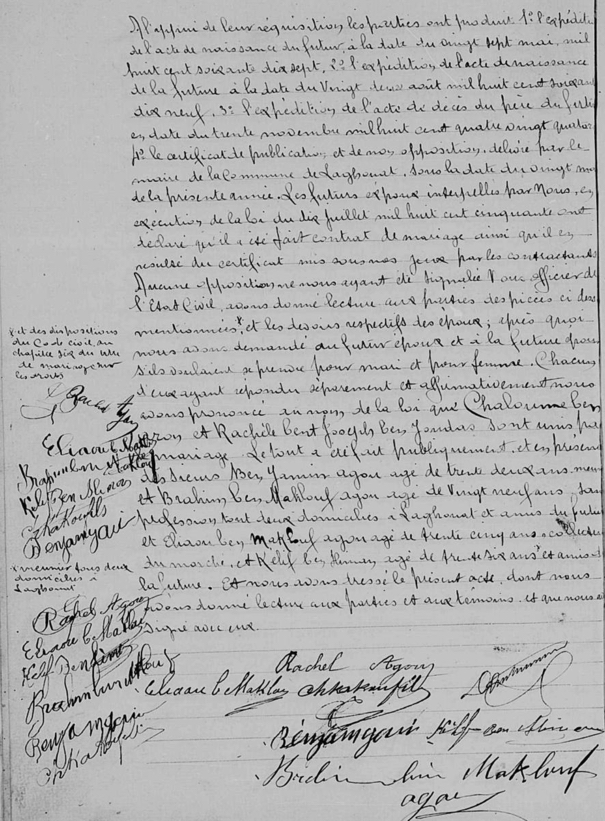 A l'appui de leur réquisition, les parties ont produit 1° l'expédit
de l'acte de naissance du futur, à la date du vingt sept mai, mil
huit cent soixante dix sept, 2° l'expédition de l'acte de naissance
de la future à la date du Vingt deux août mil huit cent soixan
dix neuf, 3° l'expédition de l'acte de décès du père du futur
en date du trente novembre mil huit cent quatre vingt quator
4° le certificat de publication, et de non opposition, délivré par le
maire de la Commune de Laghouat, sous la date du vingt
de la présente année. Les futurs époux interpellés par Nous, en
exécution, de la loi du dix juillet mil huit cent cinquante ont
déclaré qu'il a été fait contrat de mariage ainsi qu'il en
résulte du certificat mis sous nos yeux par les contractants
Aucune opposition, ne nous ayant été signalée Nous officier de
l'Etat Civil, avons donné lecture aux parties des pièces ci des
mentionnées, et les devoirs respectifs des époux; après quoi
nous avons demandé au futur époux et à la future épouse
s'ils voulaient se prendre pour mari et pour femme. Chacun
d'eux ayant répondu séparément et affirmativement, nous
avons prononcé au nom de la loi que Chaloum ben
et Rachile bent Joseph ben sont unis par
mariage. Le tout a été fait publiquement, et en présence
des sieurs Ben Yamin agou agé de trente deux ans, meu
et Brahim ben Maklouf agou agé de Vingt neuf ans, san
profession, tout deux domiciliés à Laghouat et amis du futur
et Eliaou ben Maklouf agou agé de trente cinq ans, collecteur
du marché, et Kelif ben agé de trente six ans et amis de
la future. Et nous avons dressé le présent acte, dont nous
avons donné lecture aux parties et aux témoins, et que nous a
signé avec eux.
et des dispositions
du Code civil, au
chapitre six du titre
de mariage sur
les droits
Rachel Agou
Eliaou b Maklou
Brahim ben Maklouf
Kelif Ben
Benjamin
meunier tous deux
domiciliés à
Laghouat
Rachel Agou
Eliaou b Maklou
Kelif Ben
Brahim ben Maklouf
Benjamin
Rachel Agou
Eliaou b Maklou
Benjamin Kelif Ben
Brahim ben Maklouf
agou